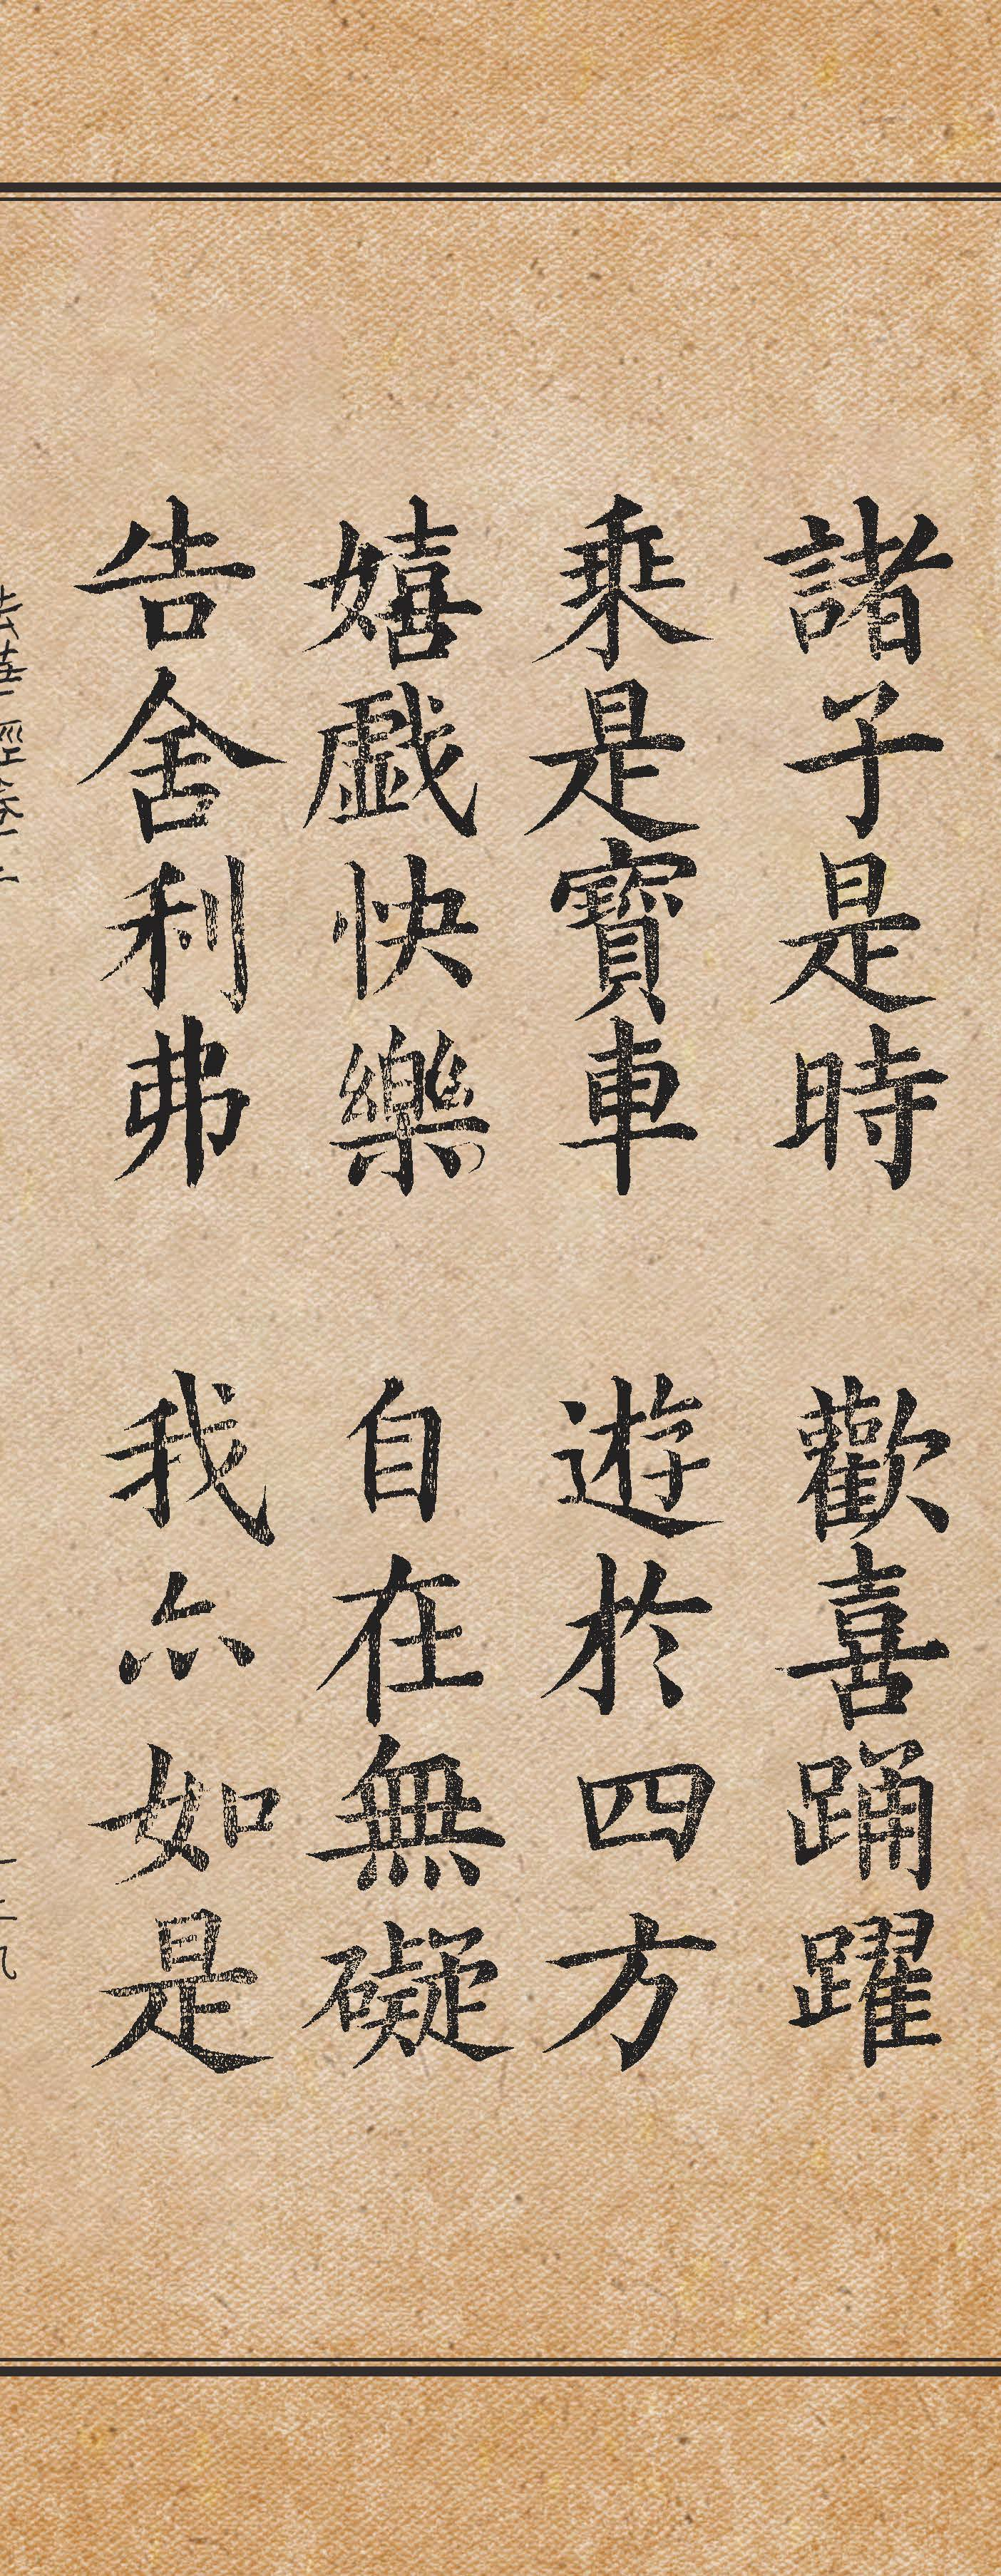 諸子是時 歡喜踊躍
乘是寶車 遊於四方
嬉戲快樂 自在無礙
告舍利弗 我亦如是